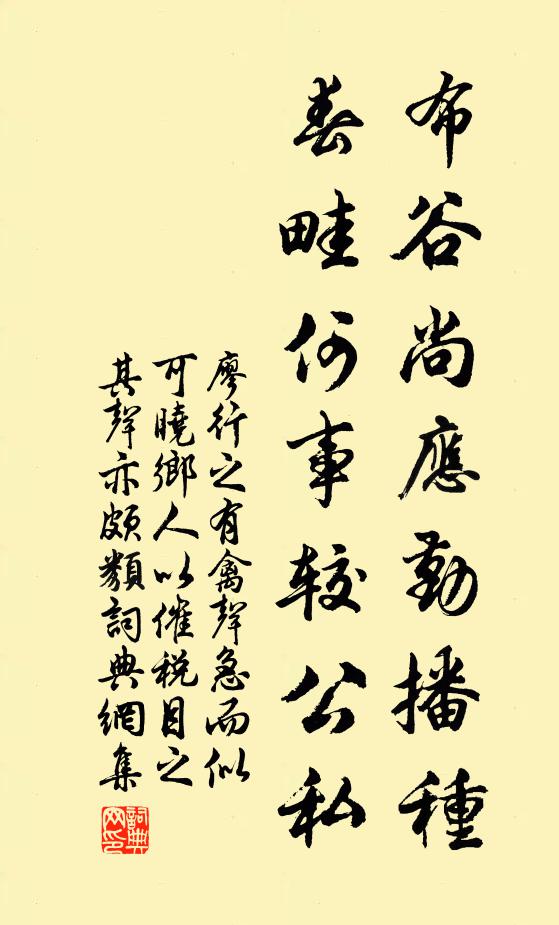 布谷尚應勤播種
春畦何事較公私
廖行之有禽聲急而似
可曉鄉人以催税目之
其聲亦頗類詞典網集
詞典
网印